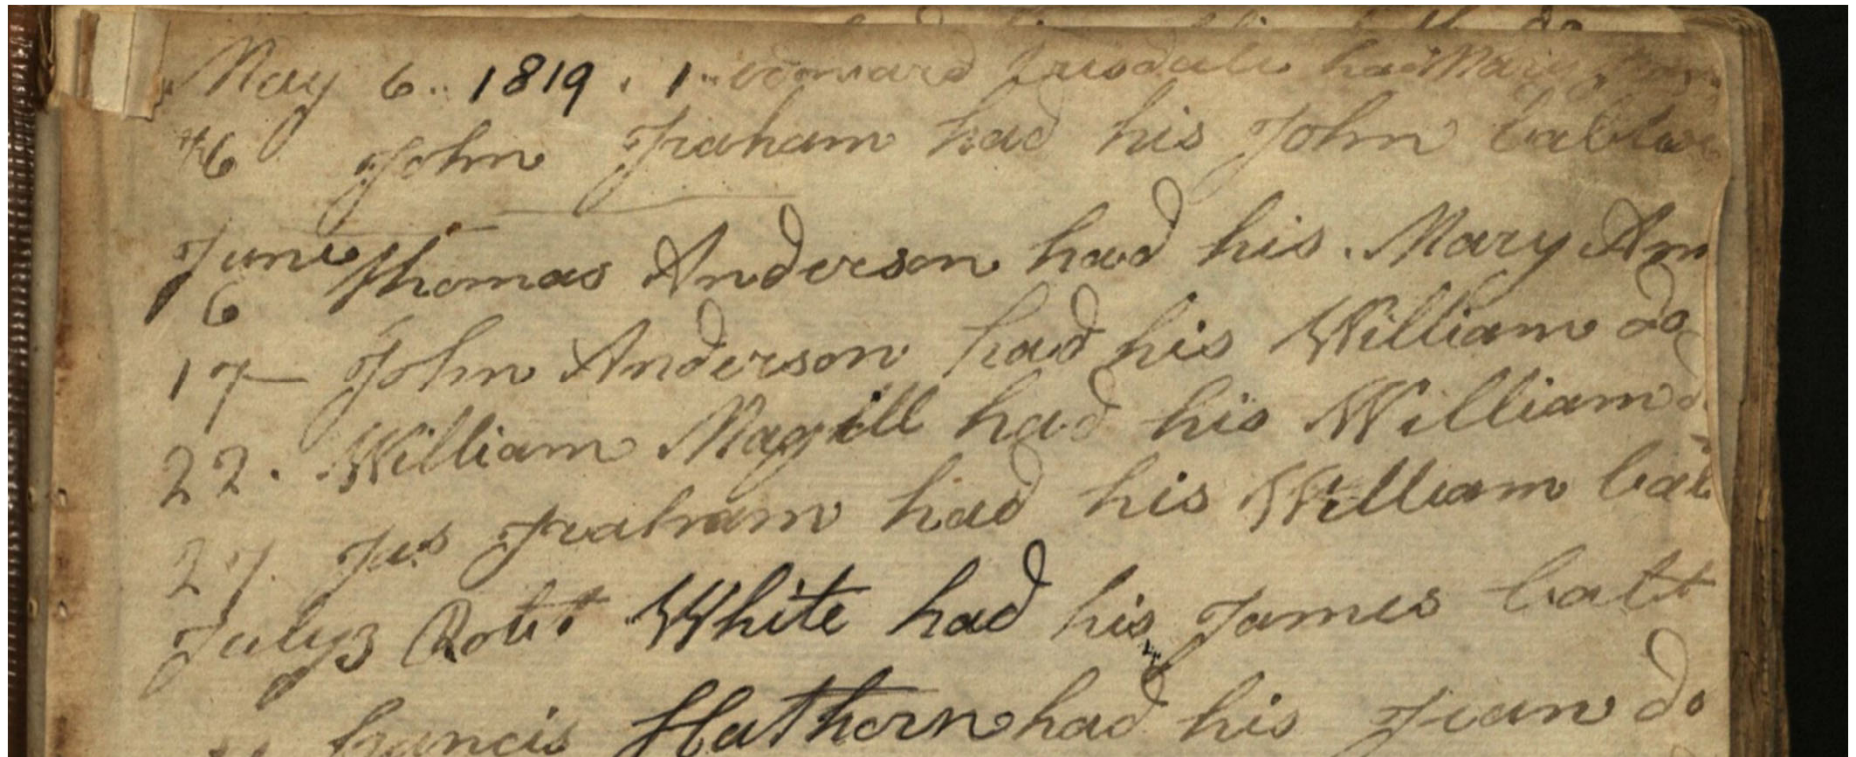 May 6.. 1819. 1.. had Mary
6 John Graham had his John
June Thomas Anderson had his. Mary Ann
6
17 John Anderson had his William do
22. William Magill had his William
27. Jas Graham had his William bap
July 3 Robt White had his James bapt
Francis Hathorn had his Jean do